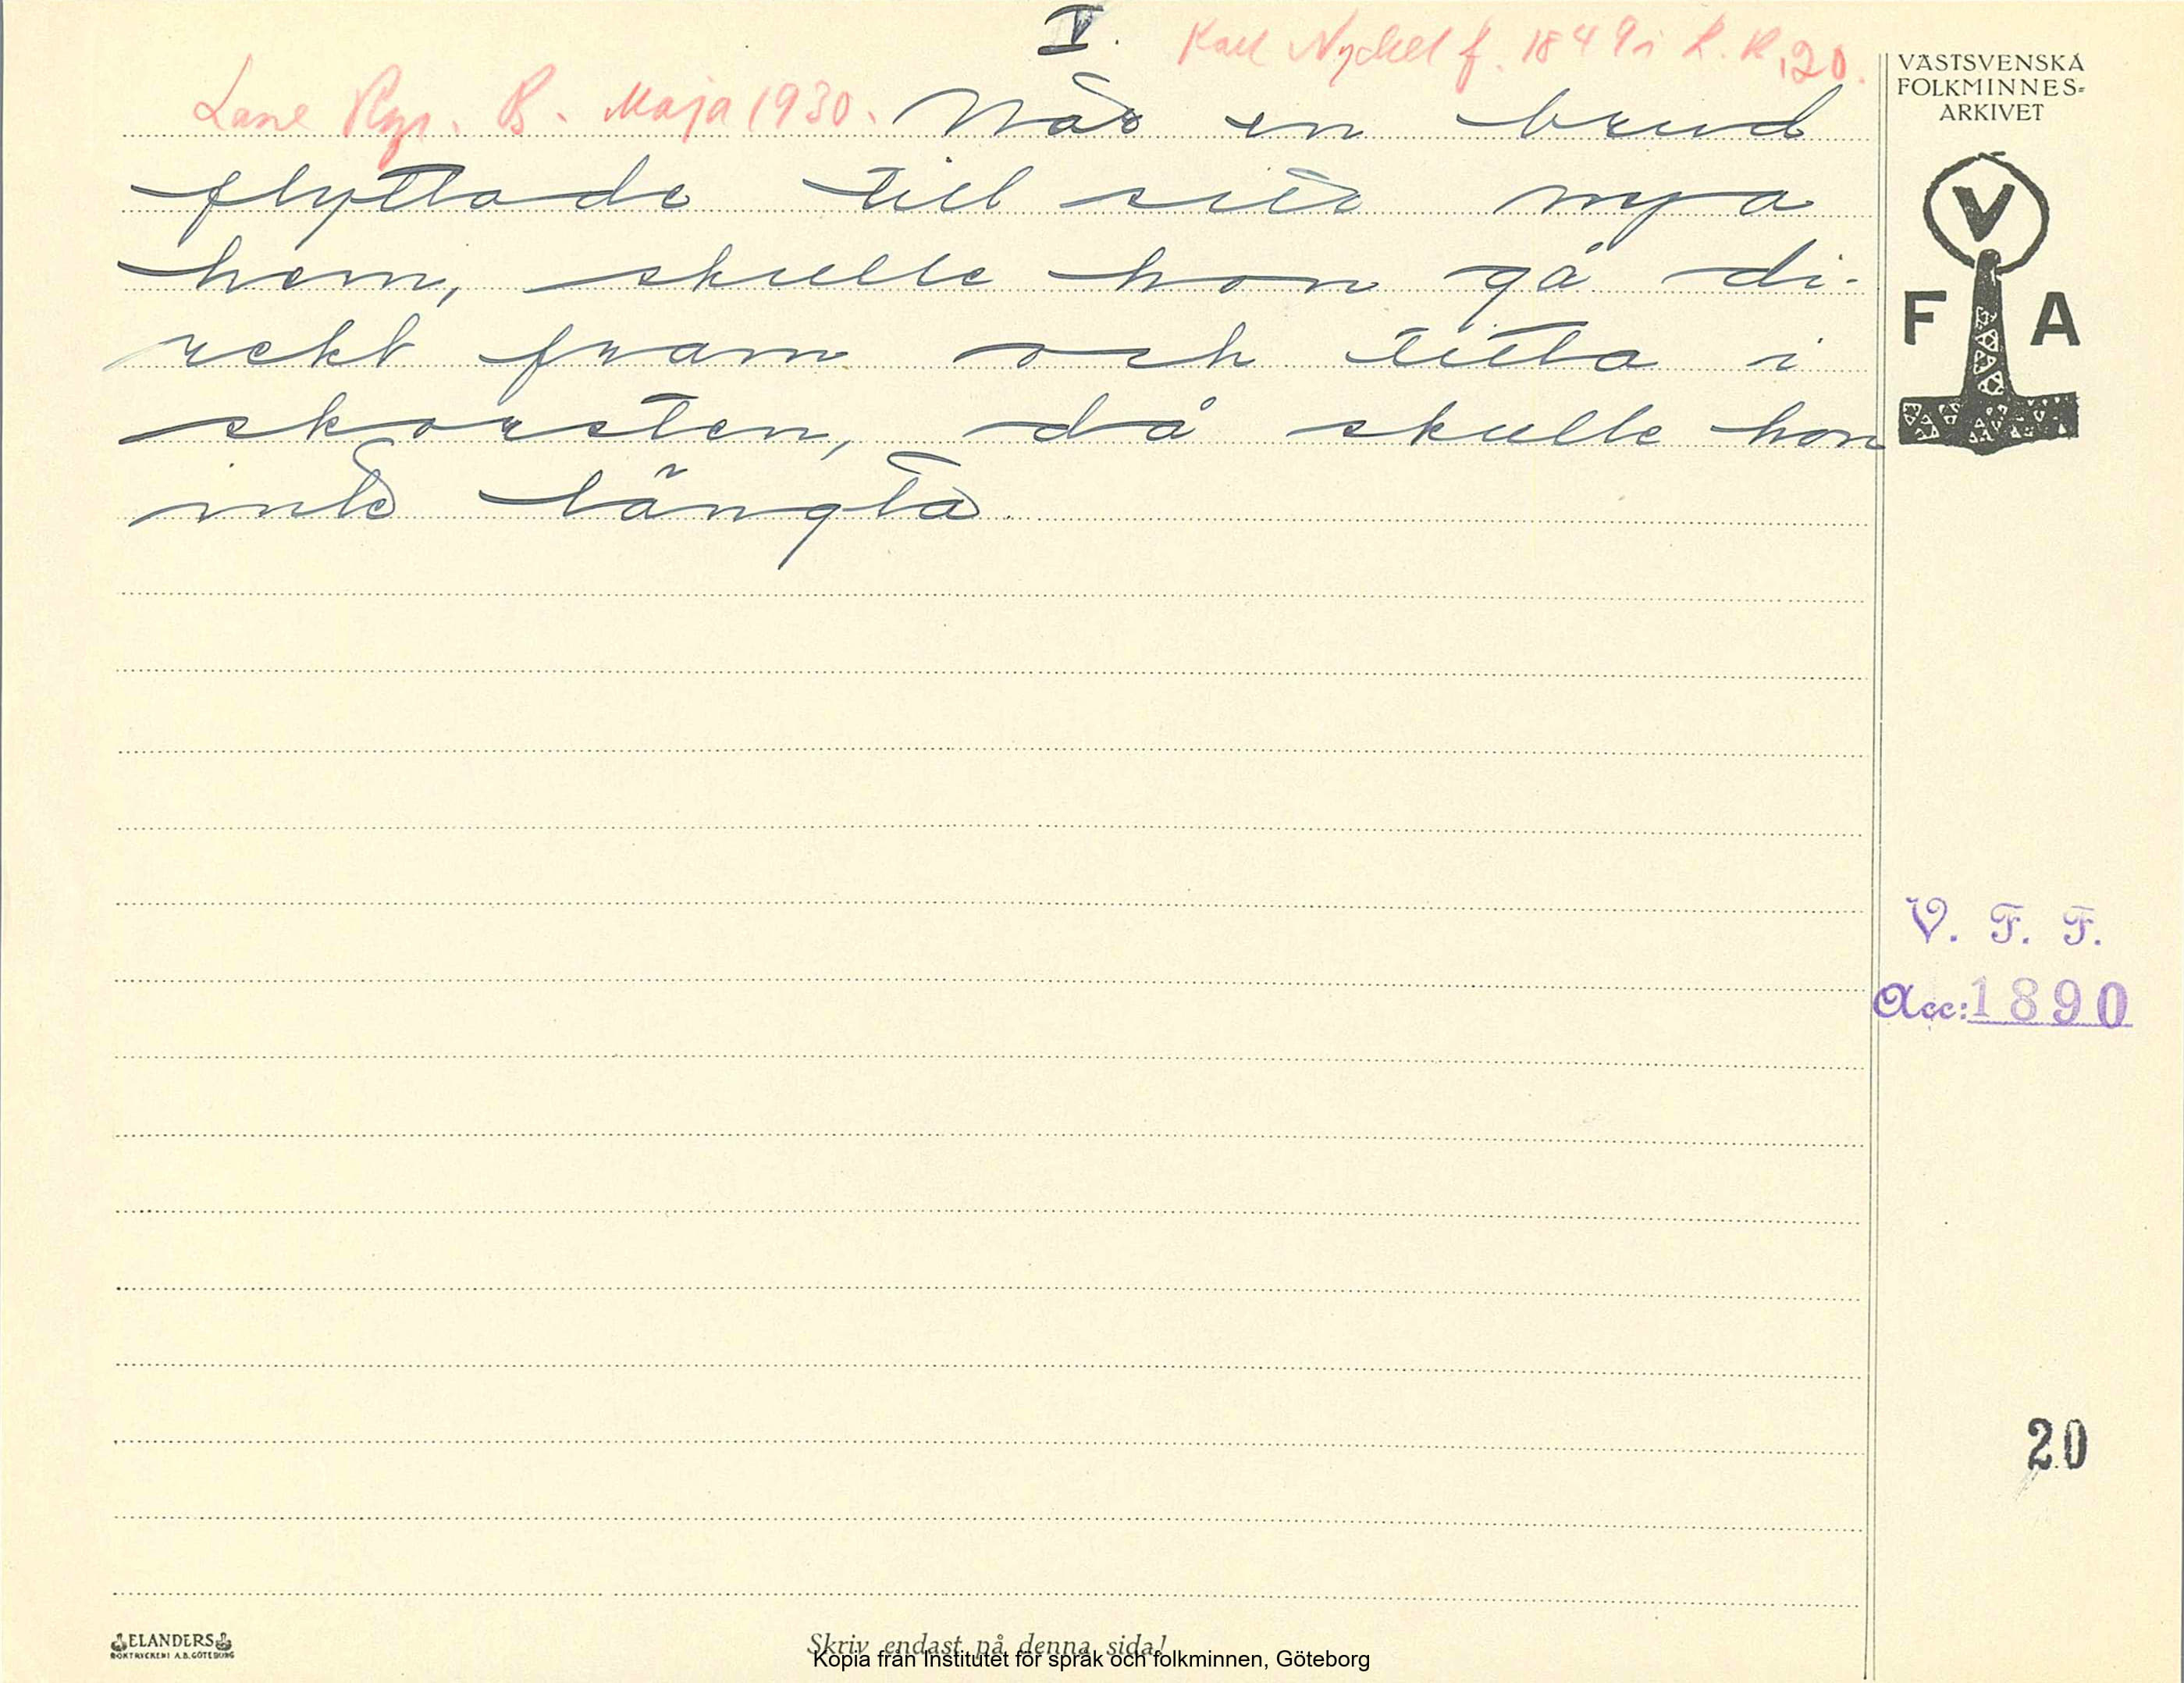 V.
Karl Nyckel f. 1849 i L. R. 20.
Lane Ryr. B. Maja 1930. När en brud
flyttade till sitt nya
hem, skulle hon gå di-
rekt fram och titta i
skorsten, då skulle hon
inte längta.
VÄSTSVENSKA
FOLKMINNES-
ARKIVET
V
F A
V. F. F.
Acc: 1890
20
ELANDERS
BOKTRYCKERI A.B. GÖTEBORG
Skriv endast på denna sida!
Kopia från Institutet för språk och folkminnen, Göteborg